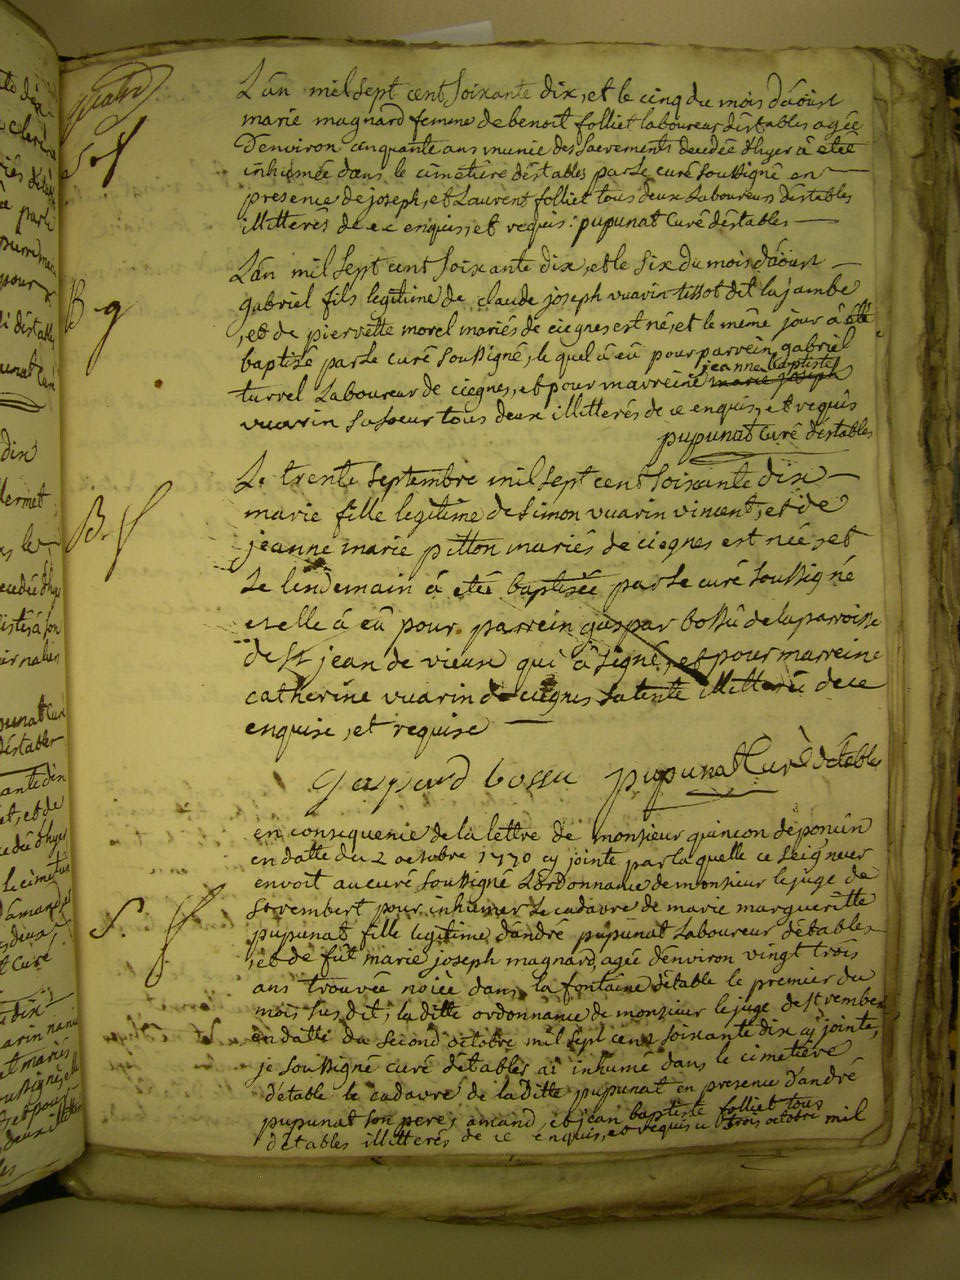 quatre
S. f
L'an mil sept cent soixante dix, et le cinq du mois d'aoust
marie magnard femme de benoit folliet laboureur d'estables agée
d'environ cinquante ans munie des sacrements decedée d'hyer à etée
inhumée dans le cimetière d'estables par le curé soussigné en
presence de joseph, et Laurent folliet tous deux Laboureurs d'estables
illitterés de ce enquis, et requis. pupunat Curé d'estables
B g
L'an mil sept cent soixante dix, et le six du mois d'aoust
gabriel fils legitime de claude joseph vuarin tissot dit la jambe
, et de pierrette morel mariés de ciegnes est né, et le même jour à été
baptisé par le curé soussigné, le quel à eû pour parrein gabriel
turrel Laboureur de ciegnes, et pour marreine marie joseph jeanne baptiste
vuarin sa soeur tous deux illitterés de ce enquis, et requis
pupunat Curé d'estables
B. f
Le trente septembre mil sept cent soixante dix
marie fille legitime de simon vuarin vincent, et de
jeanne marie pitton mariés de ciegnes est née, et
le lendemain à etée baptisée par le curé soussigné
et elle à eû pour parrein gaspar bossû de la parroisse
de st jean de vieux qui à signé, et pour marreine
catherine vuarin de ciegnes sa tente illitterée de ce
enquise, et requise
gaspard bossu pupunat Curè d'etables
S. f
en consequence de la lettre de monsieur quincon de poncin
en datte du 2 octobre 1770 cy jointe par la quelle ce seigneur
envoit au curé soussigné L'ordonnance de monsieur le juge de
st rembert pour inhumer le cadavre de marie margueritte
pupunat fille legitime d'andre pupunat Laboureur d'etables
, et de fût marie joseph magnard, agée d'environ vingt trois
ans trouvée noiée dans la fontaine d'etable le premier du
mois sus dit; la ditte ordonnance de monsieur le juge de st rembert
en datte du second octobre mil sept cent soixante dix cy jointe,
je soussigné curé d'etables ai inhumé dans le cimetière
d'etable le cadavre de la ditte pupunat en presence d'andré
pupunat son pere, amand, et jean baptiste folliet tous
d'etables illitterés de ce enquis, et requis ce trois octobre mil